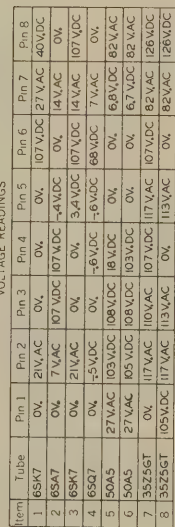 VOLTAGE READINGS
Item Tube Pin 1 Pin 2 Pin 3 Pin 4 Pin 5 Pin 6 Pin 7 Pin 8
1 6SK7 0V. 21V,AC 0V. 0V. 0V. 107V,DC 27V,AC 40V,DC
2 6SA7 0V. 7V,AC 107V,DC 107V,DC -.4V,DC 0V. 14V,AC 0V.
3 6SK7 0V. 21V,AC 0V. 0V. 3,4V,DC 107V,DC 14V,AC 107V,DC
4 6SQ7 0V. -.5V,DC 0V. -.6V,DC -.6V,DC 68V,DC 7V,AC 0V.
5 50A5 27V,AC 103V,DC 108V,DC 18V,DC 0V. 0V. 6,8V,DC 82V,AC
6 50A5 27V,AC 105V,DC 108V,DC 103V,DC 0V. 0V. 6,7V,DC 82V,AC
7 35Z5GT 0V. 117V,AC 110V,AC 107V,DC 117V,AC 107V,DC 82V,AC 126V,DC
8 35Z5GT 105V,DC 117V,AC 113V,AC 0V. 113V,AC 82V,AC 126V,DC